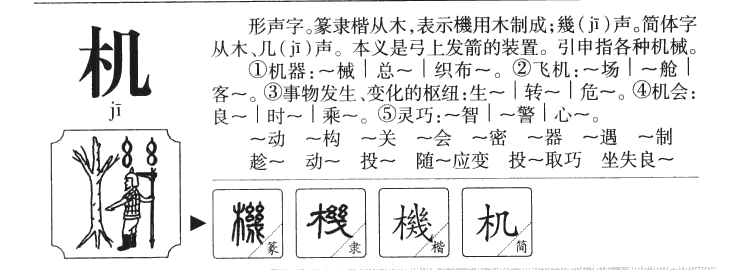 机
jī
形声字。篆隶楷从木,表示機用木制成;幾(jī)声。简体字
从木、几(jī)声。本义是弓上发箭的装置。引申指各种机械。
①机器:～械｜总～｜织布～。②飞机:～场｜～舱｜
客～。③事物发生、变化的枢纽:生～｜转～｜危～。④机会:
良～｜时～｜乘～。⑤灵巧:～智｜～警｜心～。
～动 ～构 ～关 ～会 ～密 ～器 ～遇 ～制
趁～ 动～ 投～ 随～应变 投～取巧 坐失良～
機 篆 機 隶 機 楷 机 简